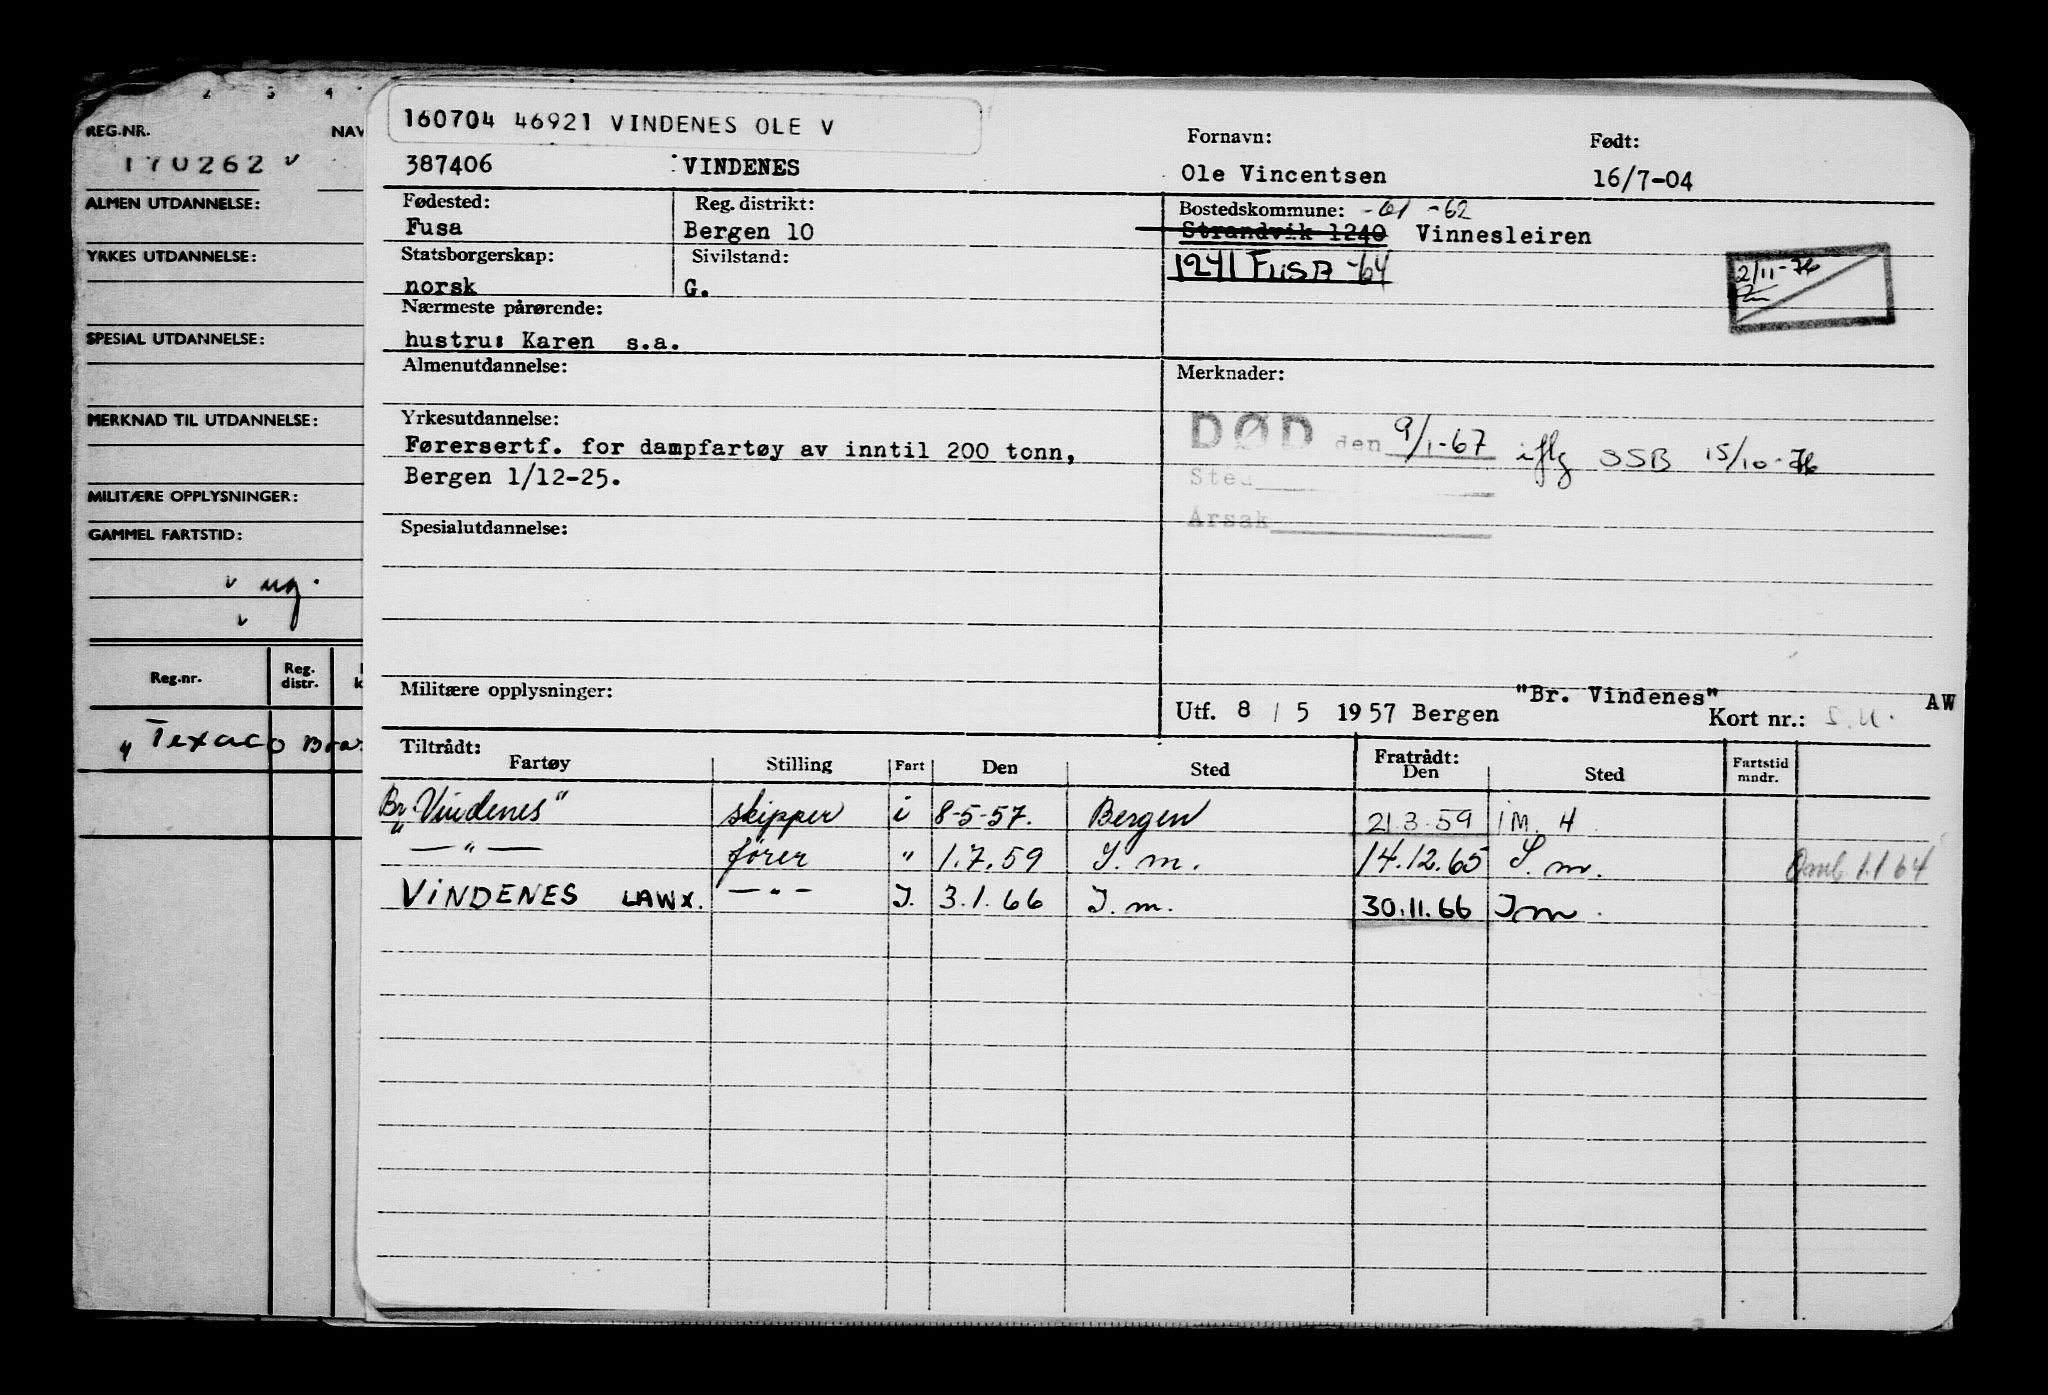 2 3 4
REG.NR. NAV
170262 v
ALMEN UTDANNELSE:
YRKES UTDANNELSE:
SPESIAL UTDANNELSE:
MERKNAD TIL UTDANNELSE:
MILITÆRE OPPLYSNINGER:
GAMMEL FARTSTID:
v ug.
v
Reg.nr. Reg. distr.
" Texaco
160704 46921 VINDENES OLE V
387406 VINDENES
Fornavn: Født:
Ole Vincentsen 16/7-04
Fødested: Reg. distrikt: Bostedskommune: -61 -62
Fusa Bergen 10 Strandvik 1240 Vinnesleiren
Statsborgerskap: Sivilstand: 1241 FUSA -64
norsk G.
2/11-76
Nærmeste pårørende:
hustru: Karen s.a.
Almenutdannelse: Merknader:
Yrkesutdannelse:
DØD den 9/1-67 iflg SSB 15/10-76
Førersertf. for dampfartøy av inntil 200 tonn,
Bergen 1/12-25.
Sted
Årsak
Spesialutdannelse:
Militære opplysninger:
"Br. Vindenes" AW
Utf. 8 / 5 1957 Bergen Kort nr.: S.U.
Tiltrådt: Fratrådt:
Fartøy Stilling Fart Den Sted Den Sted Fartstid mndr.
Br. "Vindenes" skipper i 8-5-57. Bergen 21.3.59 IM. H
— " — fører " 1.7.59 I. m. 14.12.65 I. m. Omb 1.1 64
VINDENES LAWX. — " — I. 3.1.66 I.m. 30.11.66 Im.